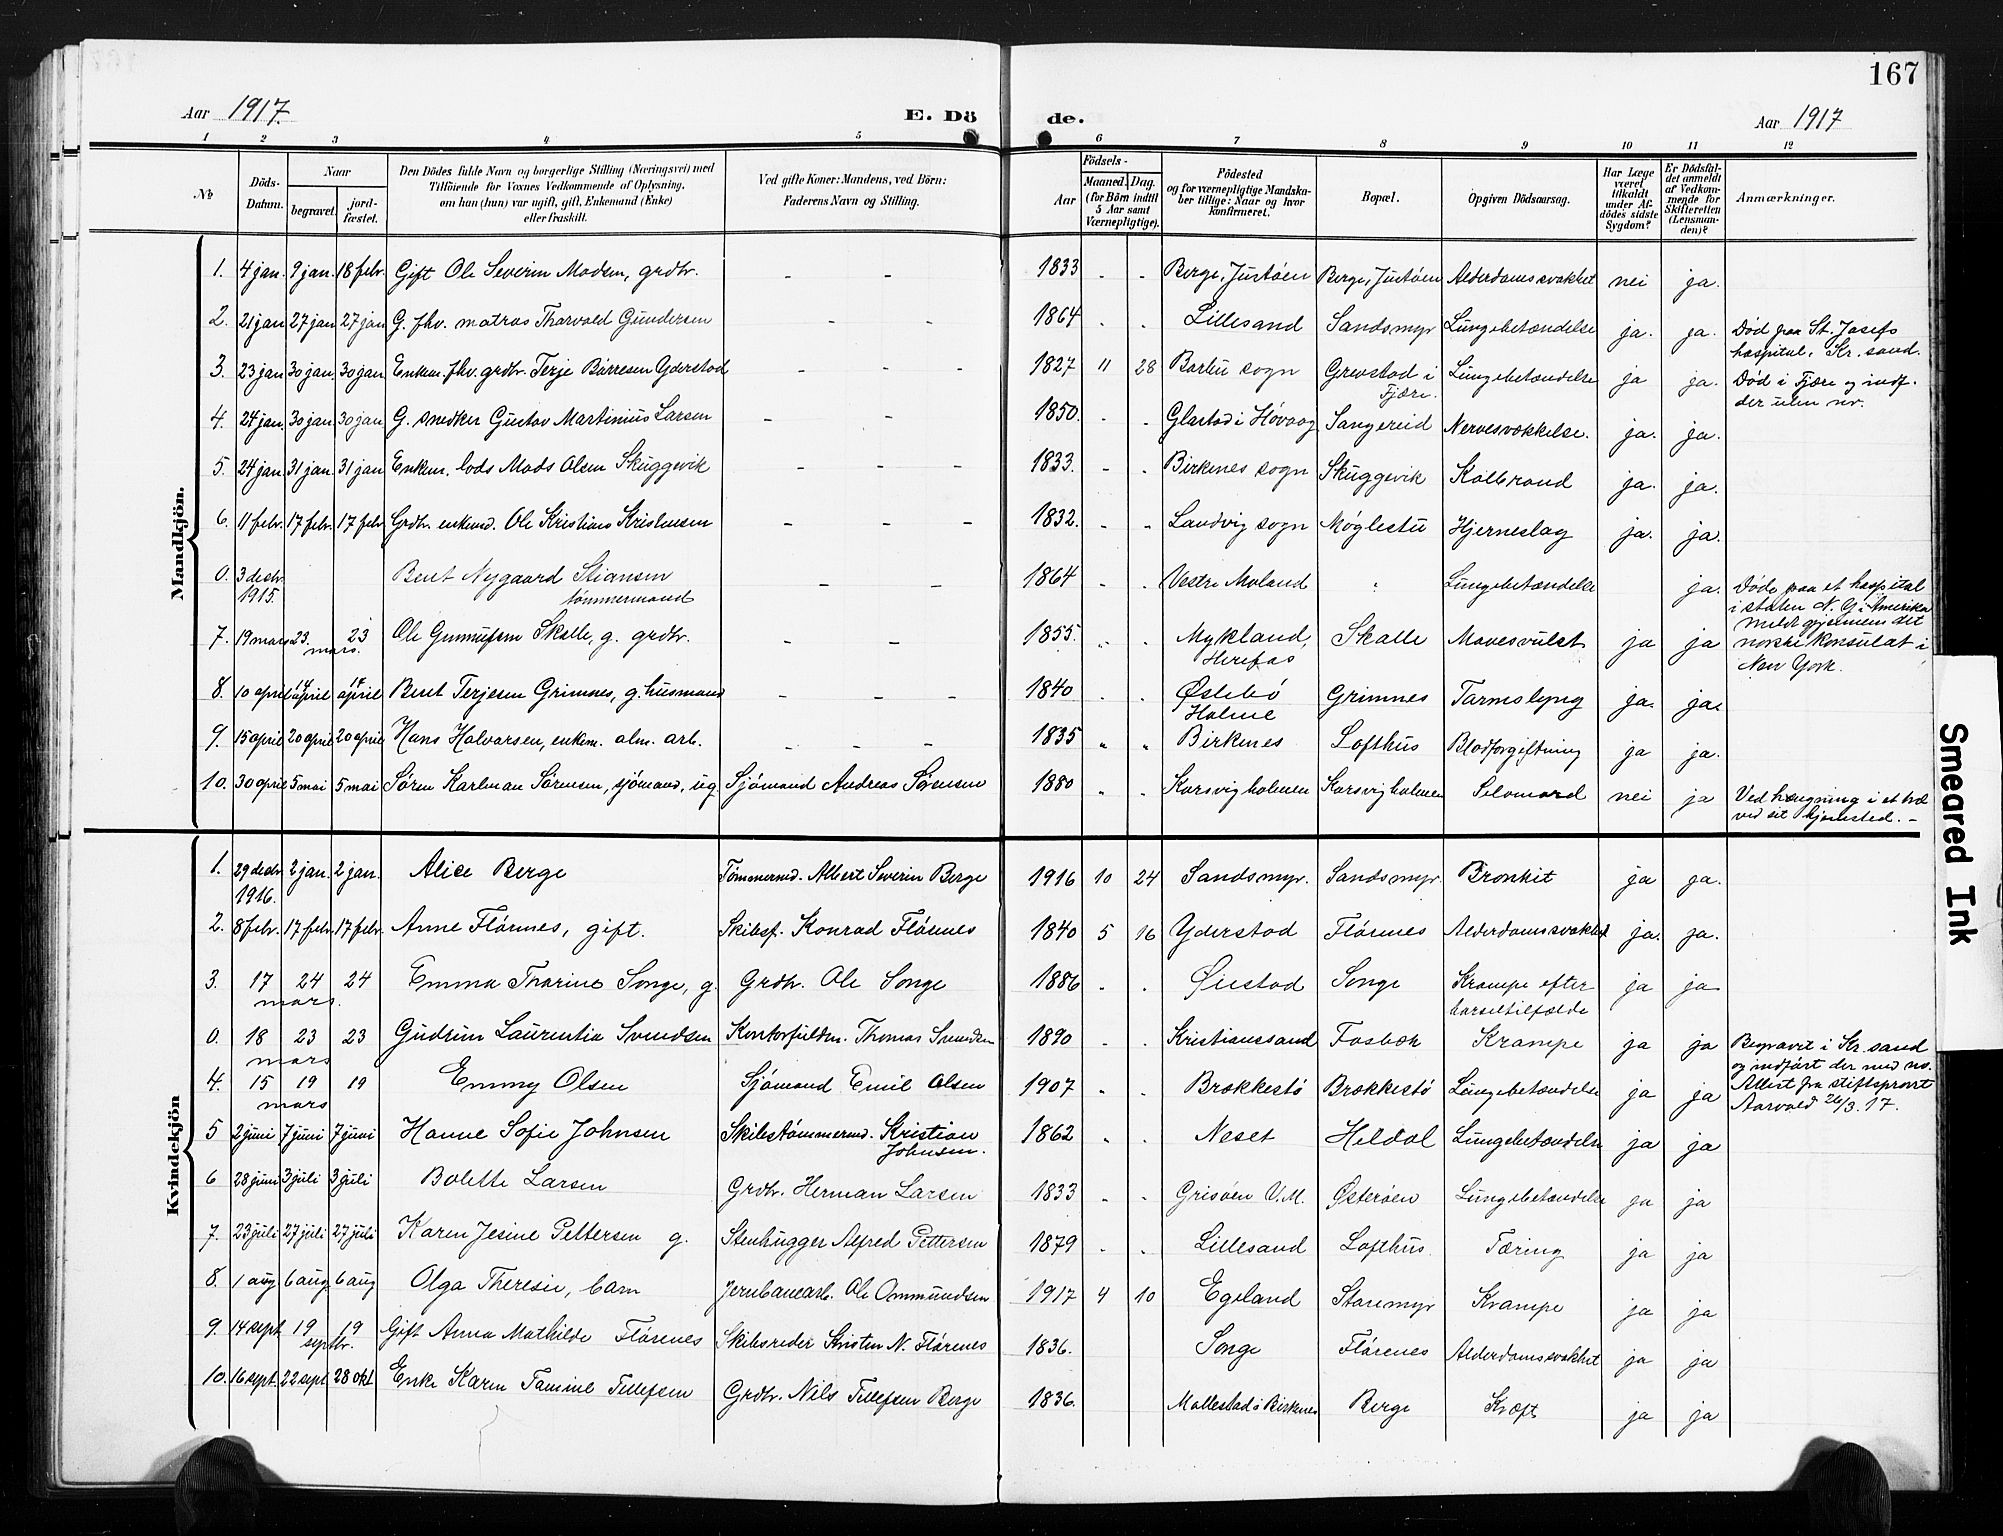 167
Aar 1917. E. Dö de. Aar 1917
1 2 3 4 5 6 7 8 9 10 11 12
№ Döds-Datum. Naar begravet. jordfæstet. Den Dödes fulde Navn og borgerlige Stilling (Næringsvei) med Tilföiende for Voxnes Vedkommende af Oplysning, om han (hun) var ugift, gift, Enkemand (Enke) eller fraskilt. Ved gifte Koner: Mandens, ved Börn: Faderens Navn og Stilling. Födsels- Aar Maaned. Dag. (for Börn indtil 5 Aar samt Værnepligtige). Födested og for værnepligtige Mandskaber tillige: Naar og hvor konfirmeret. Bopæl. Opgiven Dödsaarsag. Har Læge været tilkaldt under Afdödes sidste Sygdom? Er Dödsfaldet anmeldt af Vedkommende for Skifteretten (Lensmanden)? Anmærkninger.
Mandkjön.
1. 4 jan. 9 jan. 18 febr. Gift Ole Severin Madsen, grdbr. - - 1833 - - Berge, Justøen Berge, Justøen Alderdomssvakhet nei ja.
2. 21 jan 27 jan 27 jan G. fhv. matros Tharvald Gundersen - - 1864 - - Lillesand Sandsmyr Lungebetændelse ja. ja. Død paa St. Josefs hospital, Kr.sand.
3. 23 jan 30 jan. 30 jan. Enkem. fhv. grdbr. Terje Børresen Yderstad - - - 1827 11 28 Barbu sogn Grevstad i Fjære. Lungebetændelse ja ja. Død i Fjære og indf. der uten nr.
4. 24 jan. 30 jan. 30 jan. G. snedker Gustav Martinius Larsen - - 1850. - - Glastad i Høvaag Sangereid Nervesvækkelse. ja. ja.
5. 24 jan. 31 jan. 31 jan Enkem. lods Mads Olsen Skuggevik - - - 1833. - - Birkenes sogn Skuggevik Koldbrand ja. ja.
6. 11 febr. 17 febr. 17 febr Grdbr. enkemd. Ole Kristians Kristensen - - - 1832. - - Landvig sogn Møglestu Hjerneslag ja. ja.
0. 3 decbr. 1915. Bent Nygaard Stiansen tømmermand - - 1864 - - Vestre Moland Lungebetændelse ja. Døde paa et hospital i staten N. G i Amerika meldt gjennem det norske konsulat i New York.
7. 19 mars 23. mars. 23 Ole Gunnufsen Skalle, g. grdbr. - - 1855. - - Mykland, Herefos Skalle Mavesvulst ja ja
8. 10 april 14 april 14 april Bent Terjesen Grimnes, g. husmand 1840 - - Østebø Holme Grimnes Tarmslyng ja. ja.
9. 15 april 20 april 20 april Hans Halvorsen, enkem. alm. arb. - - - 1835 " " Birkenes Lofthus Blodforgiftning ja ja.
10. 30 april 5 mai 5 mai Søren Karlman Sørensen, sjømand, ug. Sjømand Andreas Sørensen 1880 - - Korsvigholmen Korsvigholmen Selvmord nei ja Ved hængning i et træ ved sit hjemsted. -
Kvindekjön
1. 29 decbr 1916. 2 jan. 2 jan. Alice Berge Tømmermd. Albert Severin Berge 1916 10 24 Sandsmyr. Sandsmyr. Bronkit ja ja.
2. 8 febr. 17 febr. 17 febr. Anne Flørenes, gift. Skibsf. Konrad Flørenes 1840 5 16 Yderstad Flørenes Alderdomssvakhet ja. ja.
3. 17 mars. 24 24 Emma Tharine Songe, g. Grdbr. Ole Songe 1886 - - Øiestad Songe Krampe efter barseltilfælde ja ja
0. 18 mars 23 23 Gudrun Laurentia Svendsen Kontorfuldm. Thomas Svendsen 1890 - - Kristianssand Fosbæk Krampe ja ja Begravet i Kr.sand og indført der med no. Attest fra stiftsprovst Aarvold 26/3.17.
4. 15 mars 19 19 Emmy Olsen Sjømand Emil Olsen 1907 - - Brækkestø Brækkestø Lungebetændelse ja ja
5 2 juni 7 juni 7 juni Hanne Sofie Johnsen Skibstømmermd. Kristian Johnsen. 1862 - - Neset Heldal Lungebetændelse ja ja
6 28 juni 3 juli 3 juli Bolette Larsen Grdbr. Herman Larsen 1833 - - Grisøen V. M. Østerøen Lungebetændelse ja ja
7. 23 juli 27 juli 27 juli Karen Jesine Pettersen g. Stenhugger Alfred Pettersen 1879 - - Lillesand Lofthus. Tæring ja ja
8. 1 aug 6 aug. 6 aug Olga Theresie, barn Jernbanearb. Ole Ommundsen 1917 4 10 Egeland Staremyr Krampe ja ja
9. 14 sept. 19 septbr. 19 Gift Anna Mathilde Flørenes Skibsreder Kristen N. Flørenes 1836. Songe Flørenes Alderdomssvakhet ja ja
10. 16 sept. 22 sept 28 okt. Enke Karen Tomine Tellefsen Grdbr. Nils Tellefsen Berge 1836. Mollestad i Birkenes Berge Kræft ja ja
Smeared Ink